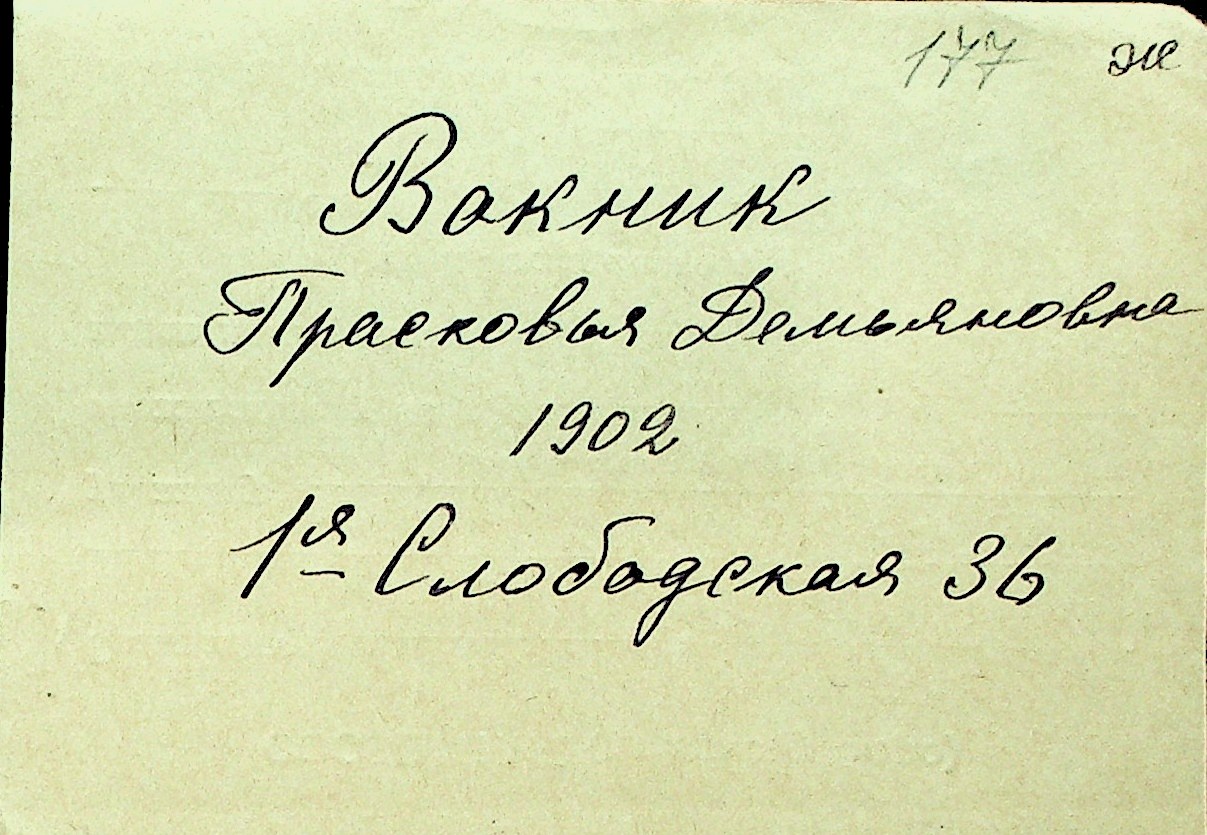 177 ж
Вакник
Прасковья Демьяновна
1902
1я Слободская 36